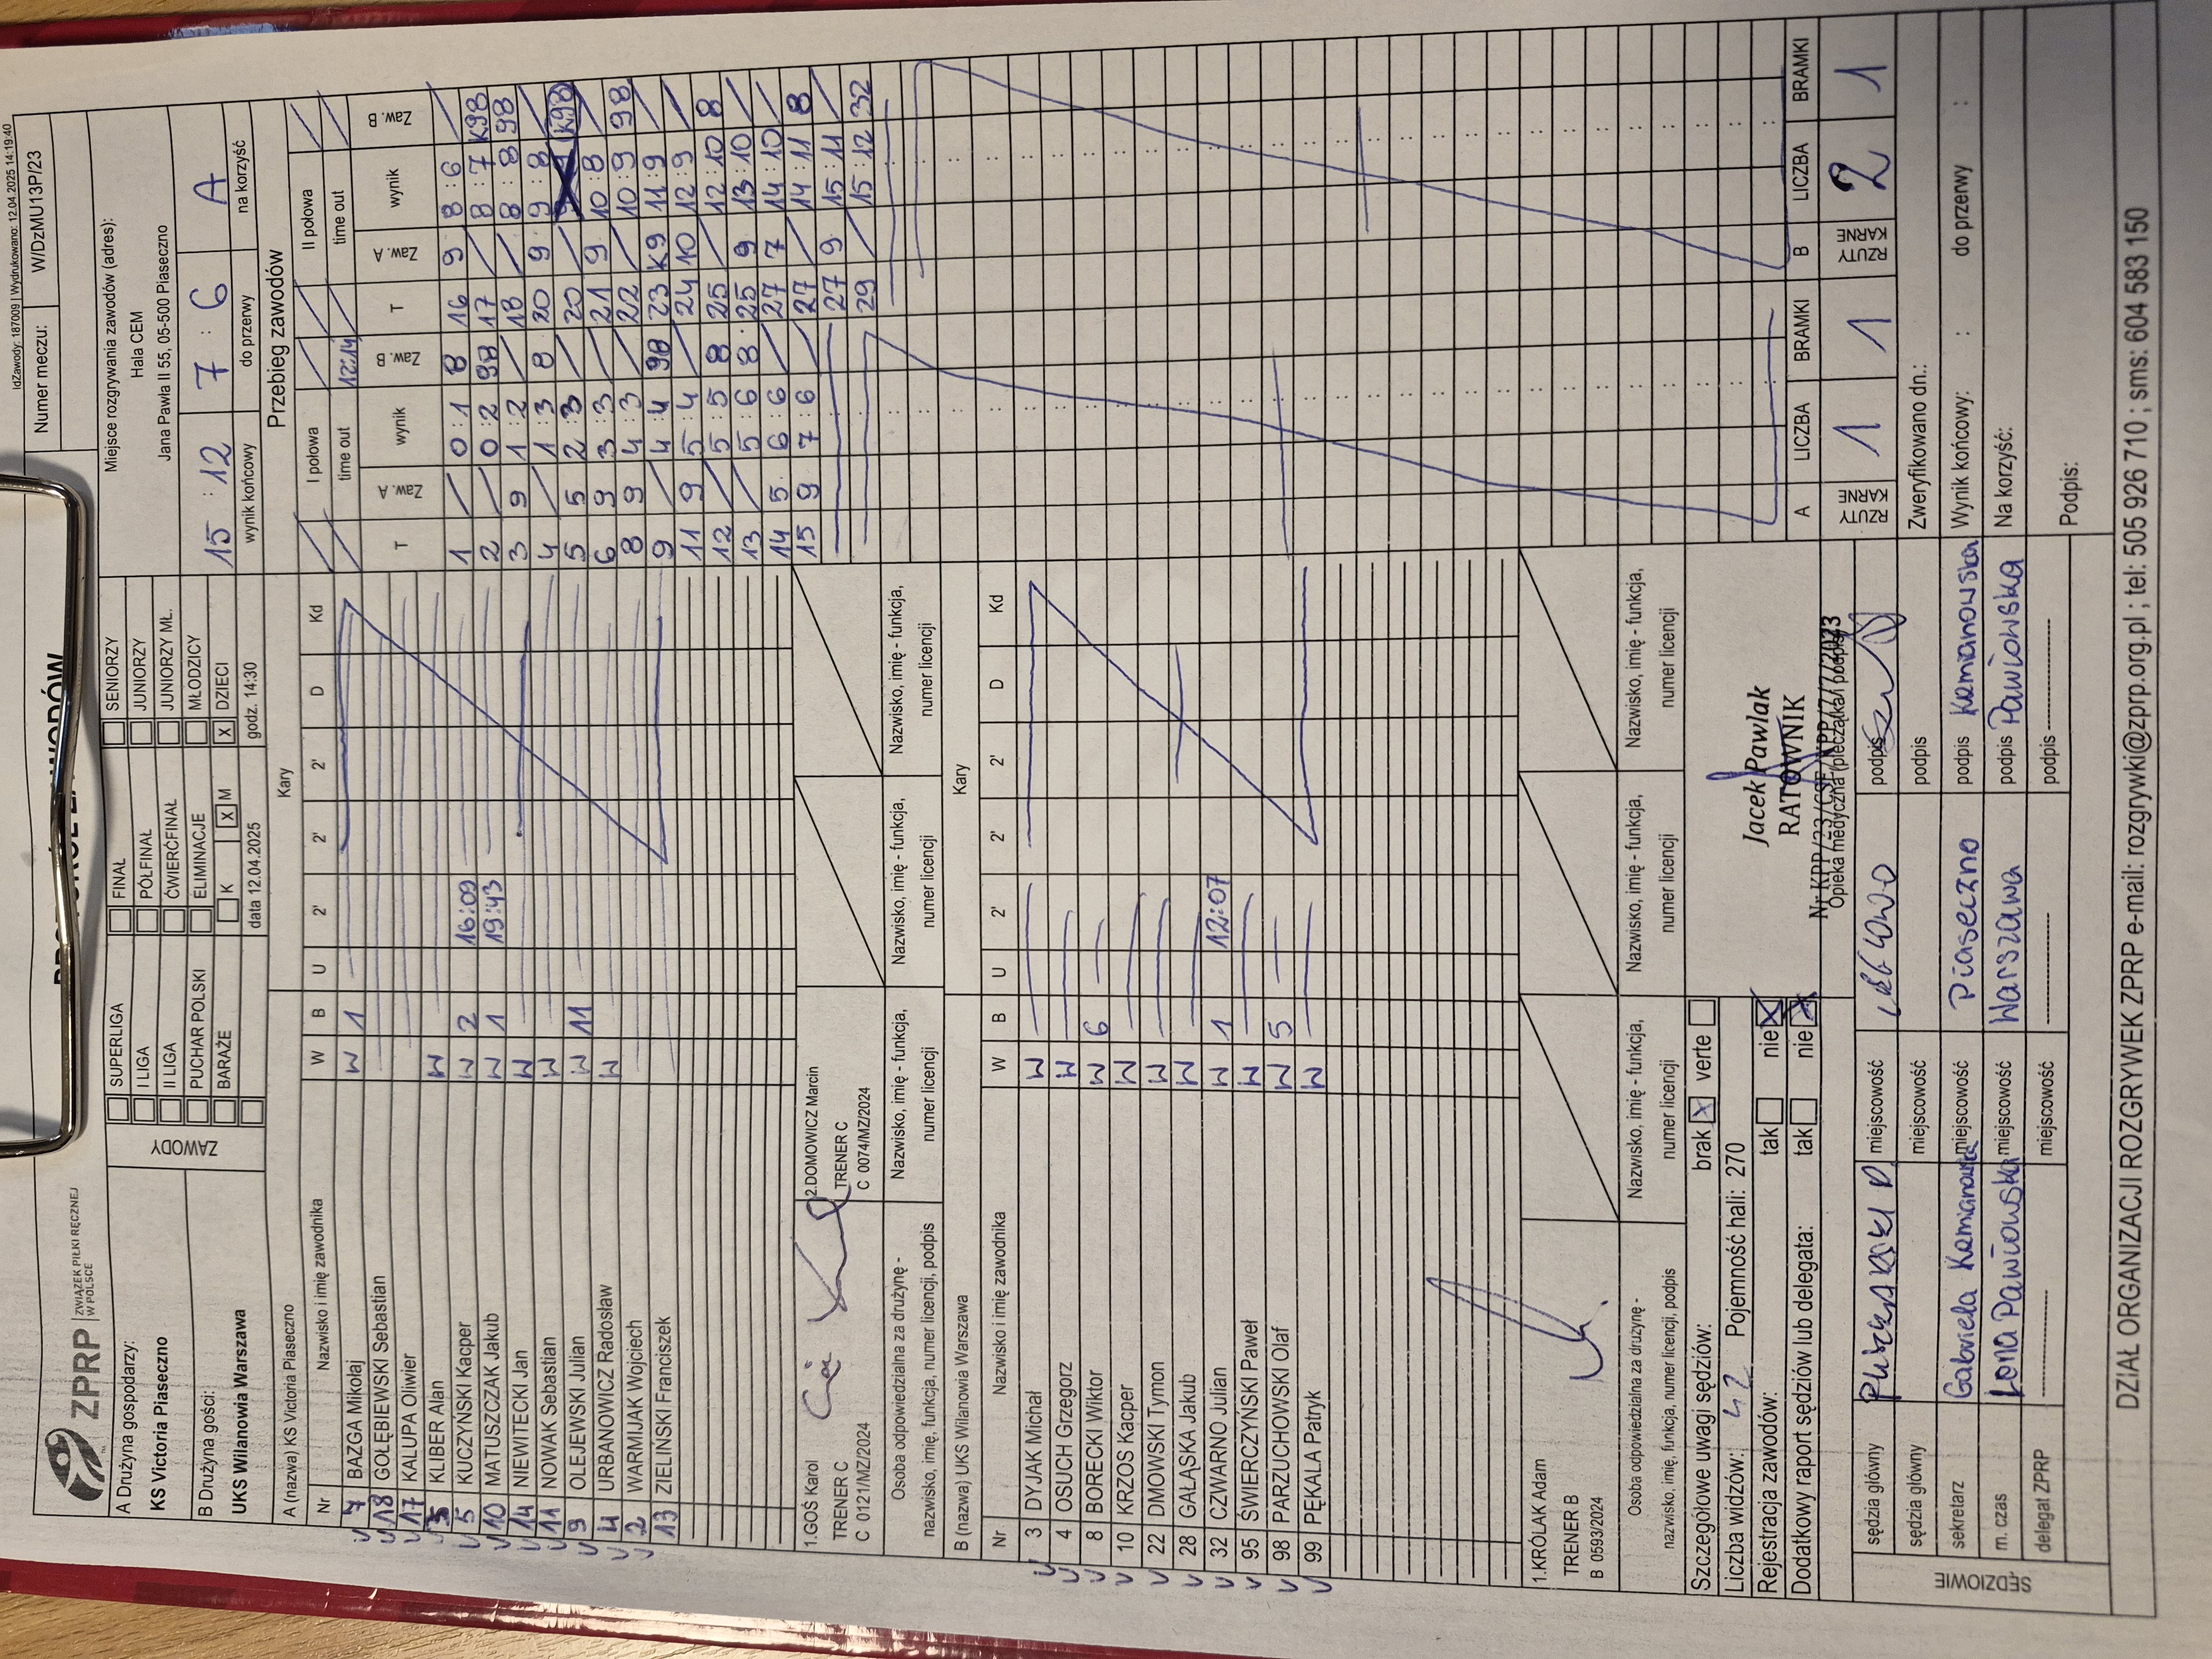 IdZawody: 187009 | Wydrukowano: 12.04.2025 14:19:40
ZPRP ZWIĄZEK PIŁKI RĘCZNEJ W POLSCE
Numer meczu: W/DzMU13P/23
A Drużyna gospodarzy:
KS Victoria Piaseczno
B Drużyna gości:
UKS Wilanowia Warszawa
ZAWODY
SUPERLIGA FINAŁ SENIORZY
I LIGA PÓŁFINAŁ JUNIORZY
II LIGA ĆWIERĆFINAŁ JUNIORZY MŁ.
PUCHAR POLSKI ELIMINACJE MŁODZICY
BARAŻE K X M X DZIECI
data 12.04.2025 godz. 14:30
Miejsce rozgrywania zawodów (adres):
Hala CEM
Jana Pawła II 55, 05-500 Piaseczno
15 : 12 7 : 6 A
wynik końcowy do przerwy na korzyść
A (nazwa) KS Victoria Piaseczno Kary
Nr Nazwisko i imię zawodnika W B U 2' 2' 2' D Kd
7 BAZGA Mikołaj W 1
18 GOŁĘBIEWSKI Sebastian
17 KALUPA Oliwier
KLIBER Alan W
5 KUCZYŃSKI Kacper W 2 16:09
10 MATUSZCZAK Jakub W 1 19:43
14 NIEWITECKI Jan W
11 NOWAK Sebastian W
9 OLEJEWSKI Julian W 11
4 URBANOWICZ Radosław W
2 WARMIJAK Wojciech
13 ZIELIŃSKI Franciszek
1.GOŚ Karol 2.DOMOWICZ Marcin
TRENER C TRENER C
C 0121/MZ/2024 C 0074/MZ/2024
Osoba odpowiedzialna za drużynę - Nazwisko, imię - funkcja, Nazwisko, imię - funkcja, Nazwisko, imię - funkcja, Nazwisko, imię - funkcja,
nazwisko, imię, funkcja, numer licencji, podpis numer licencji numer licencji numer licencji numer licencji
B (nazwa) UKS Wilanowia Warszawa Kary
Nr Nazwisko i imię zawodnika W B U 2' 2' 2' D Kd
3 DYJAK Michał W
4 OSUCH Grzegorz W
8 BORECKI Wiktor W 6
10 KRZOS Kacper W
22 DMOWSKI Tymon W
28 GAŁASKA Jakub W
32 CZWARNO Julian W 1 12:07
95 ŚWIERCZYŃSKI Paweł W
98 PARZUCHOWSKI Olaf W 5
99 PĘKALA Patryk W
1.KRÓLAK Adam
TRENER B
B 0593/2024
Osoba odpowiedzialna za drużynę - Nazwisko, imię - funkcja, Nazwisko, imię - funkcja, Nazwisko, imię - funkcja, Nazwisko, imię - funkcja,
nazwisko, imię, funkcja, numer licencji, podpis numer licencji numer licencji numer licencji numer licencji
Szczegółowe uwagi sędziów: brak X verte
Liczba widzów: 42 Pojemność hali: 270
Rejestracja zawodów: tak nie X
Dodatkowy raport sędziów lub delegata: tak nie X
Jacek Pawlak
RATOWNIK
Opieka medyczna (pieczątka i podpis)
SĘDZIOWIE
sędzia główny miejscowość podpis
sędzia główny miejscowość podpis
sekretarz Gabriela miejscowość Piaseczno podpis
m. czas miejscowość Warszawa podpis
delegat ZPRP miejscowość podpis
Przebieg zawodów
I połowa II połowa
time out 12:14 time out
T Zaw. A wynik Zaw. B T Zaw. A wynik Zaw. B
1 / 0:1 8 16 9 8:6 /
2 / 0:2 98 17 / 8:7 K98
3 9 1:2 / 18 / 8:8 98
4 / 1:3 8 20 9 9:8 /
5 5 2:3 / 20 / K98
6 9 3:3 / 21 9 10:8 /
8 9 4:3 / 22 / 10:9 98
9 / 4:4 98 23 K9 11:9 /
11 9 5:4 / 24 10 12:9 /
12 / 5:5 8 25 / 12:10 8
13 / 5:6 8 25 9 13:10 /
14 5 6:6 / 27 7 14:10 /
15 9 7:6 / 27 / 14:11 8
27 9 15:11 /
29 / 15:12 32
A LICZBA BRAMKI B LICZBA BRAMKI
RZUTY KARNE 1 1 RZUTY KARNE 2 1
Zweryfikowano dn.:
Wynik końcowy: : do przerwy :
Na korzyść:
Podpis:
DZIAŁ ORGANIZACJI ROZGRYWEK ZPRP e-mail: rozgrywki@zprp.org.pl ; tel: 505 926 710 ; sms: 604 583 150